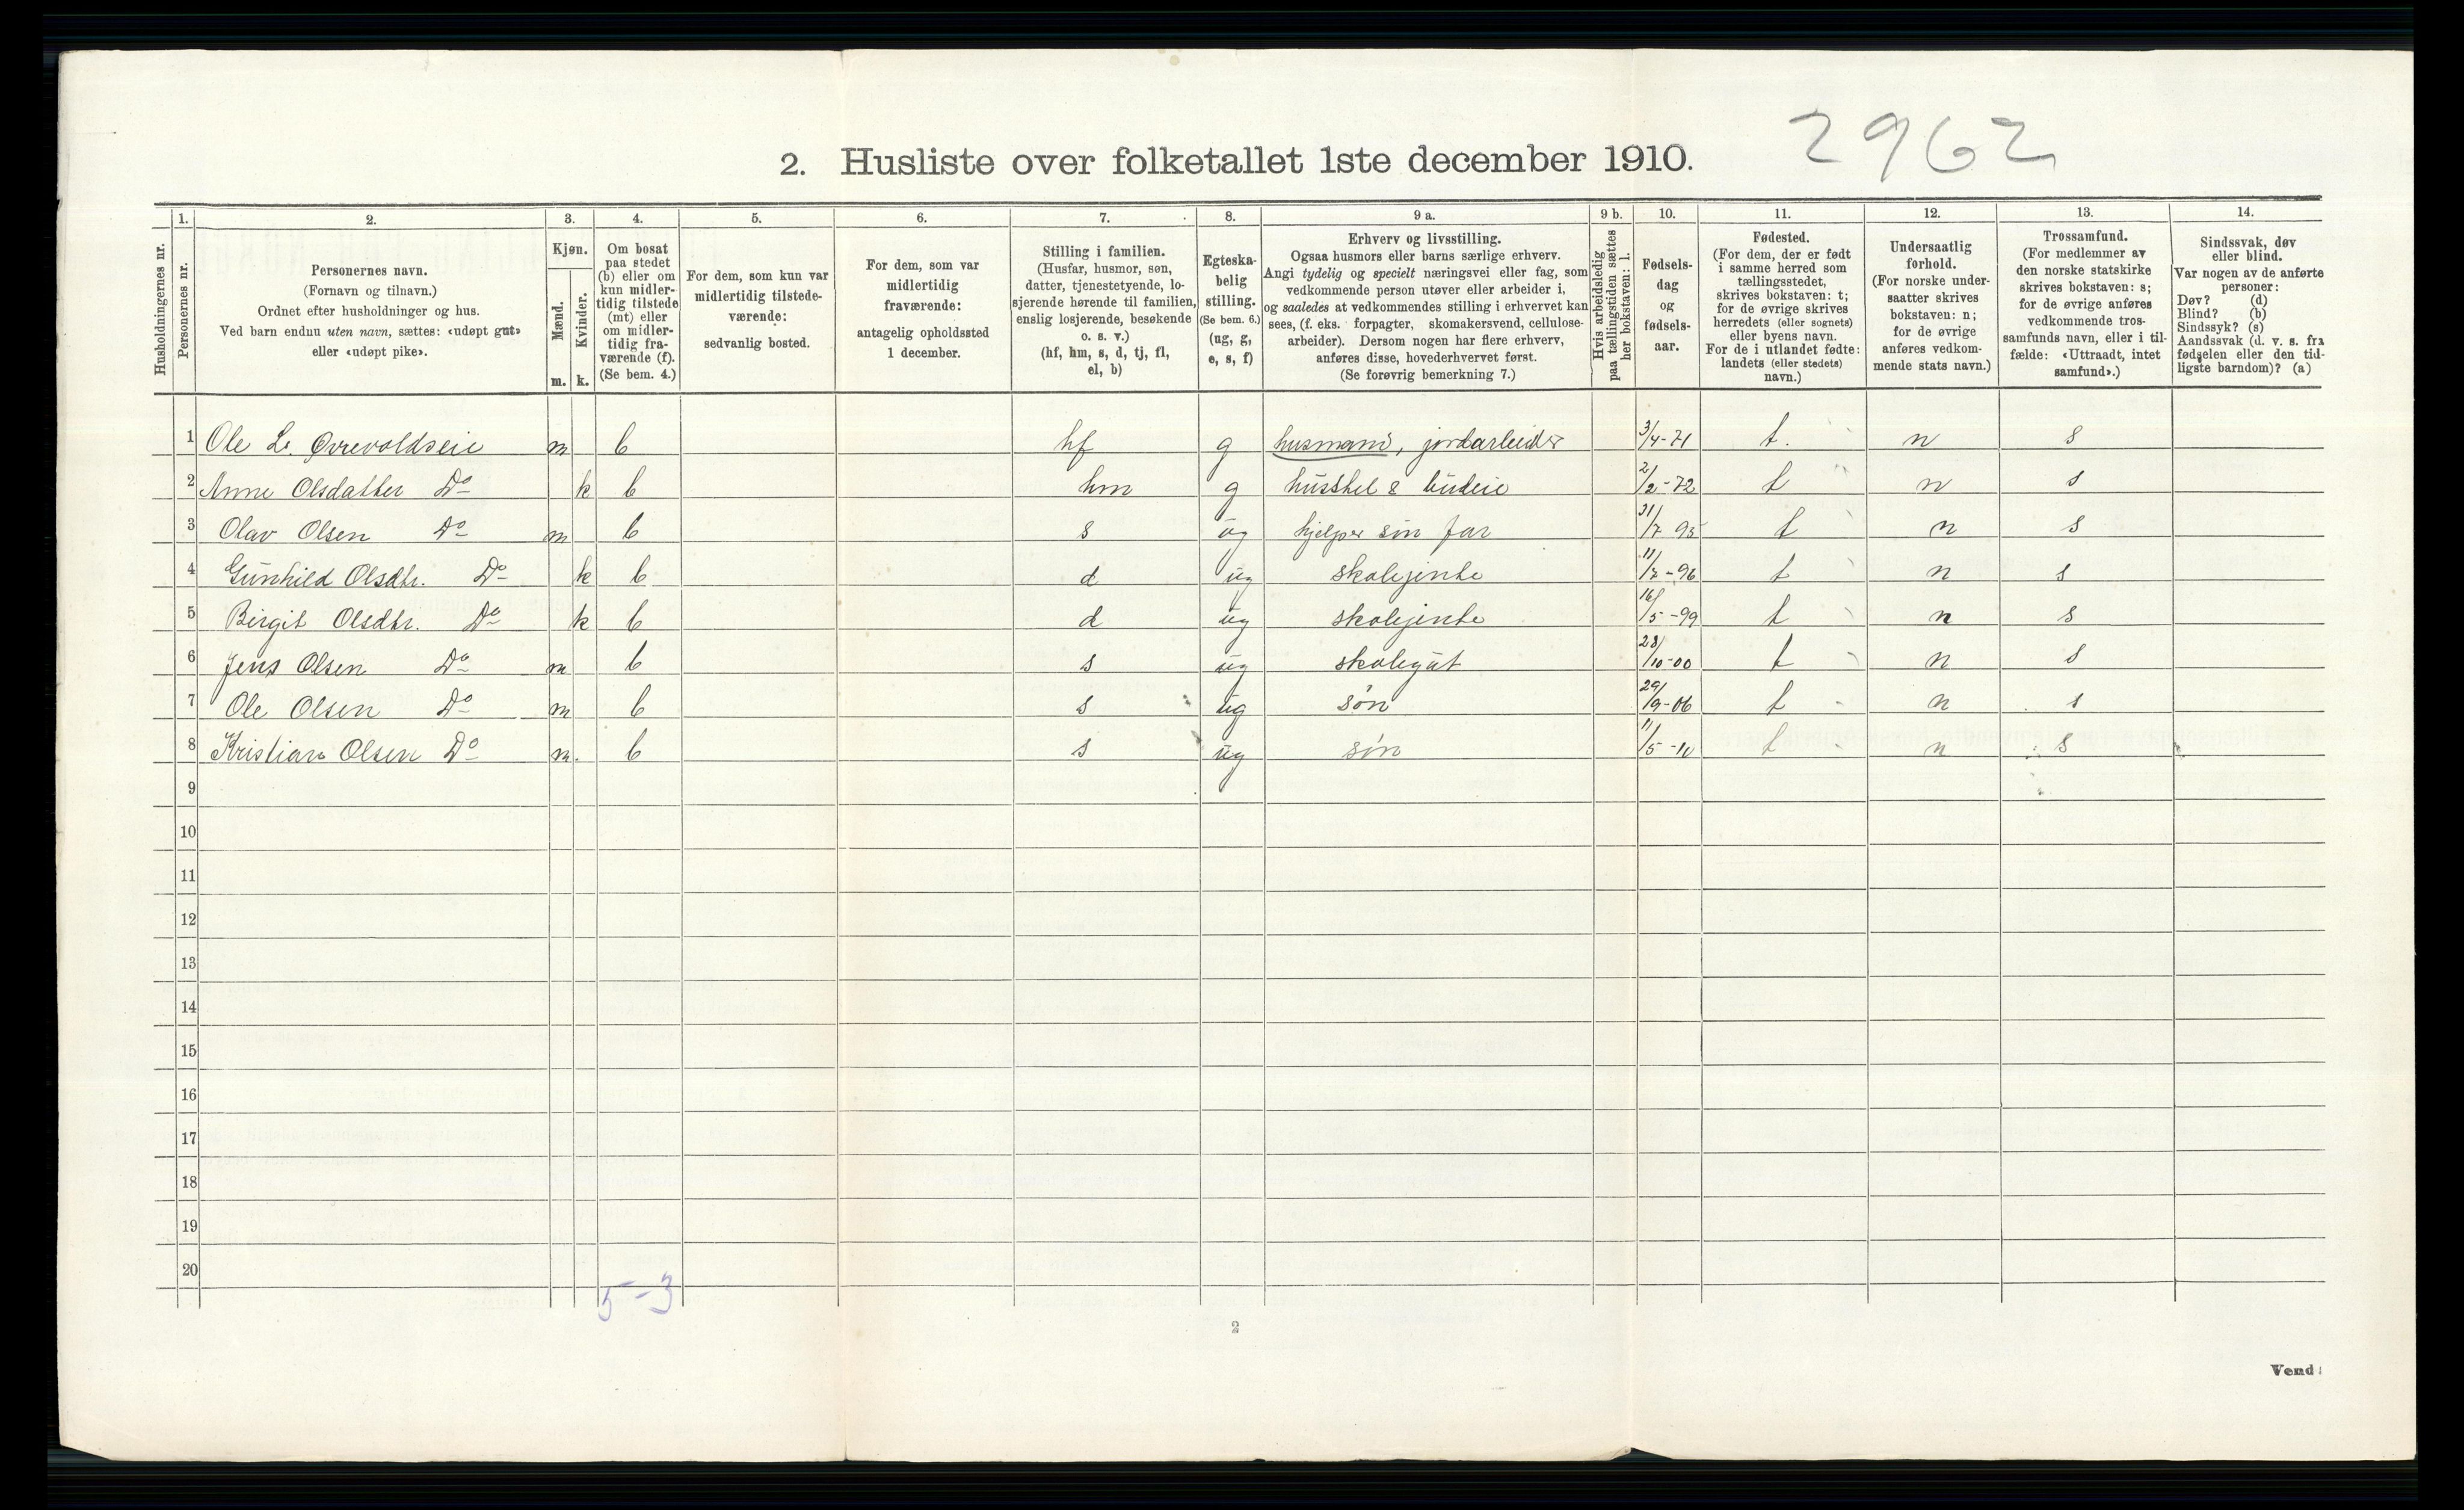 2962
2. Husliste over folketallet 1ste december 1910.
Husholdningernes nr.
1. Personernes nr.
2. Personernes navn.
(Fornavn og tilnavn.)
Ordnet efter husholdninger og hus.
Ved barn endnu uten navn, sættes: «udøpt gut»
eller «udøpt pike».
3. Kjøn.
Mænd. m.
Kvinder. k.
4. Om bosat
paa stedet
(b) eller om
kun midler-
tidig tilstede
(mt) eller
om midler-
tidig fra-
værende (f).
(Se bem. 4.)
5. For dem, som kun var
midlertidig tilstede-
værende:
sedvanlig bosted.
6. For dem, som var
midlertidig
fraværende:
antagelig opholdssted
1 december.
7. Stilling i familien.
(Husfar, husmor, søn,
datter, tjenestetyende, lo-
sjerende hørende til familien,
enslig losjerende, besøkende
o. s. v.)
(hf, hm, s, d, tj, fl,
el, b)
8. Egteska-
belig
stilling.
(Se bem. 6.)
(ug, g,
e, s, f)
9 a. Erhverv og livsstilling.
Ogsaa husmors eller barns særlige erhverv.
Angi tydelig og specielt næringsvei eller fag, som
vedkommende person utøver eller arbeider i,
og saaledes at vedkommendes stilling i erhvervet kan
sees, (f. eks. forpagter, skomakersvend, cellulose-
arbeider). Dersom nogen har flere erhverv,
anføres disse, hovederhvervet først.
(Se forøvrig bemerkning 7.)
9 b. Hvis arbeidsledig
paa tællingstiden sættes
her bokstaven: l.
10. Fødsels-
dag
og
fødsels-
aar.
11. Fødested.
(For dem, der er født
i samme herred som
tællingsstedet,
skrives bokstaven: t;
for de øvrige skrives
herredets (eller sognets)
eller byens navn.
For de i utlandet fødte:
landets (eller stedets)
navn.)
12. Undersaatlig
forhold.
(For norske under-
saatter skrives
bokstaven: n;
for de øvrige
anføres vedkom-
mende stats navn.)
13. Trossamfund.
(For medlemmer av
den norske statskirke
skrives bokstaven: s;
for de øvrige anføres
vedkommende tros-
samfunds navn, eller i til-
fælde: «Uttraadt, intet
samfund».)
14. Sindssvak, døv
eller blind.
Var nogen av de anførte
personer:
Døv? (d)
Blind? (b)
Sindssyk? (s)
Aandssvak (d. v. s. fra
fødselen eller den tid-
ligste barndom)? (a)
1 Ole L. Øvrevoldseie m b hf g husmand, jordarbeider 3/4-71 t. n s
2 Anne Olsdatter Do k b hm g husstel & budeie 2/2-72 t n s
3 Olav Olsen Do m b s ug hjelper sin far 31/7 95 t n s
4 Gunhild Olsdtr. Do k b d ug skolejente 11/7-96 t n s
5 Birgit Olsdtr. Do k b d ug skolejente 16/5-99 t n s
6 Jens Olsen Do m b s ug skolegut 28/10-00 t n s
7 Ole Olsen Do m b s ug søn 29/9-06 t n s
8 Kristian Olsen Do m. b s ug søn 11/5-10 t n s
9
10
11
12
13
14
15
16
17
18
19
20
5-3
2
Vend